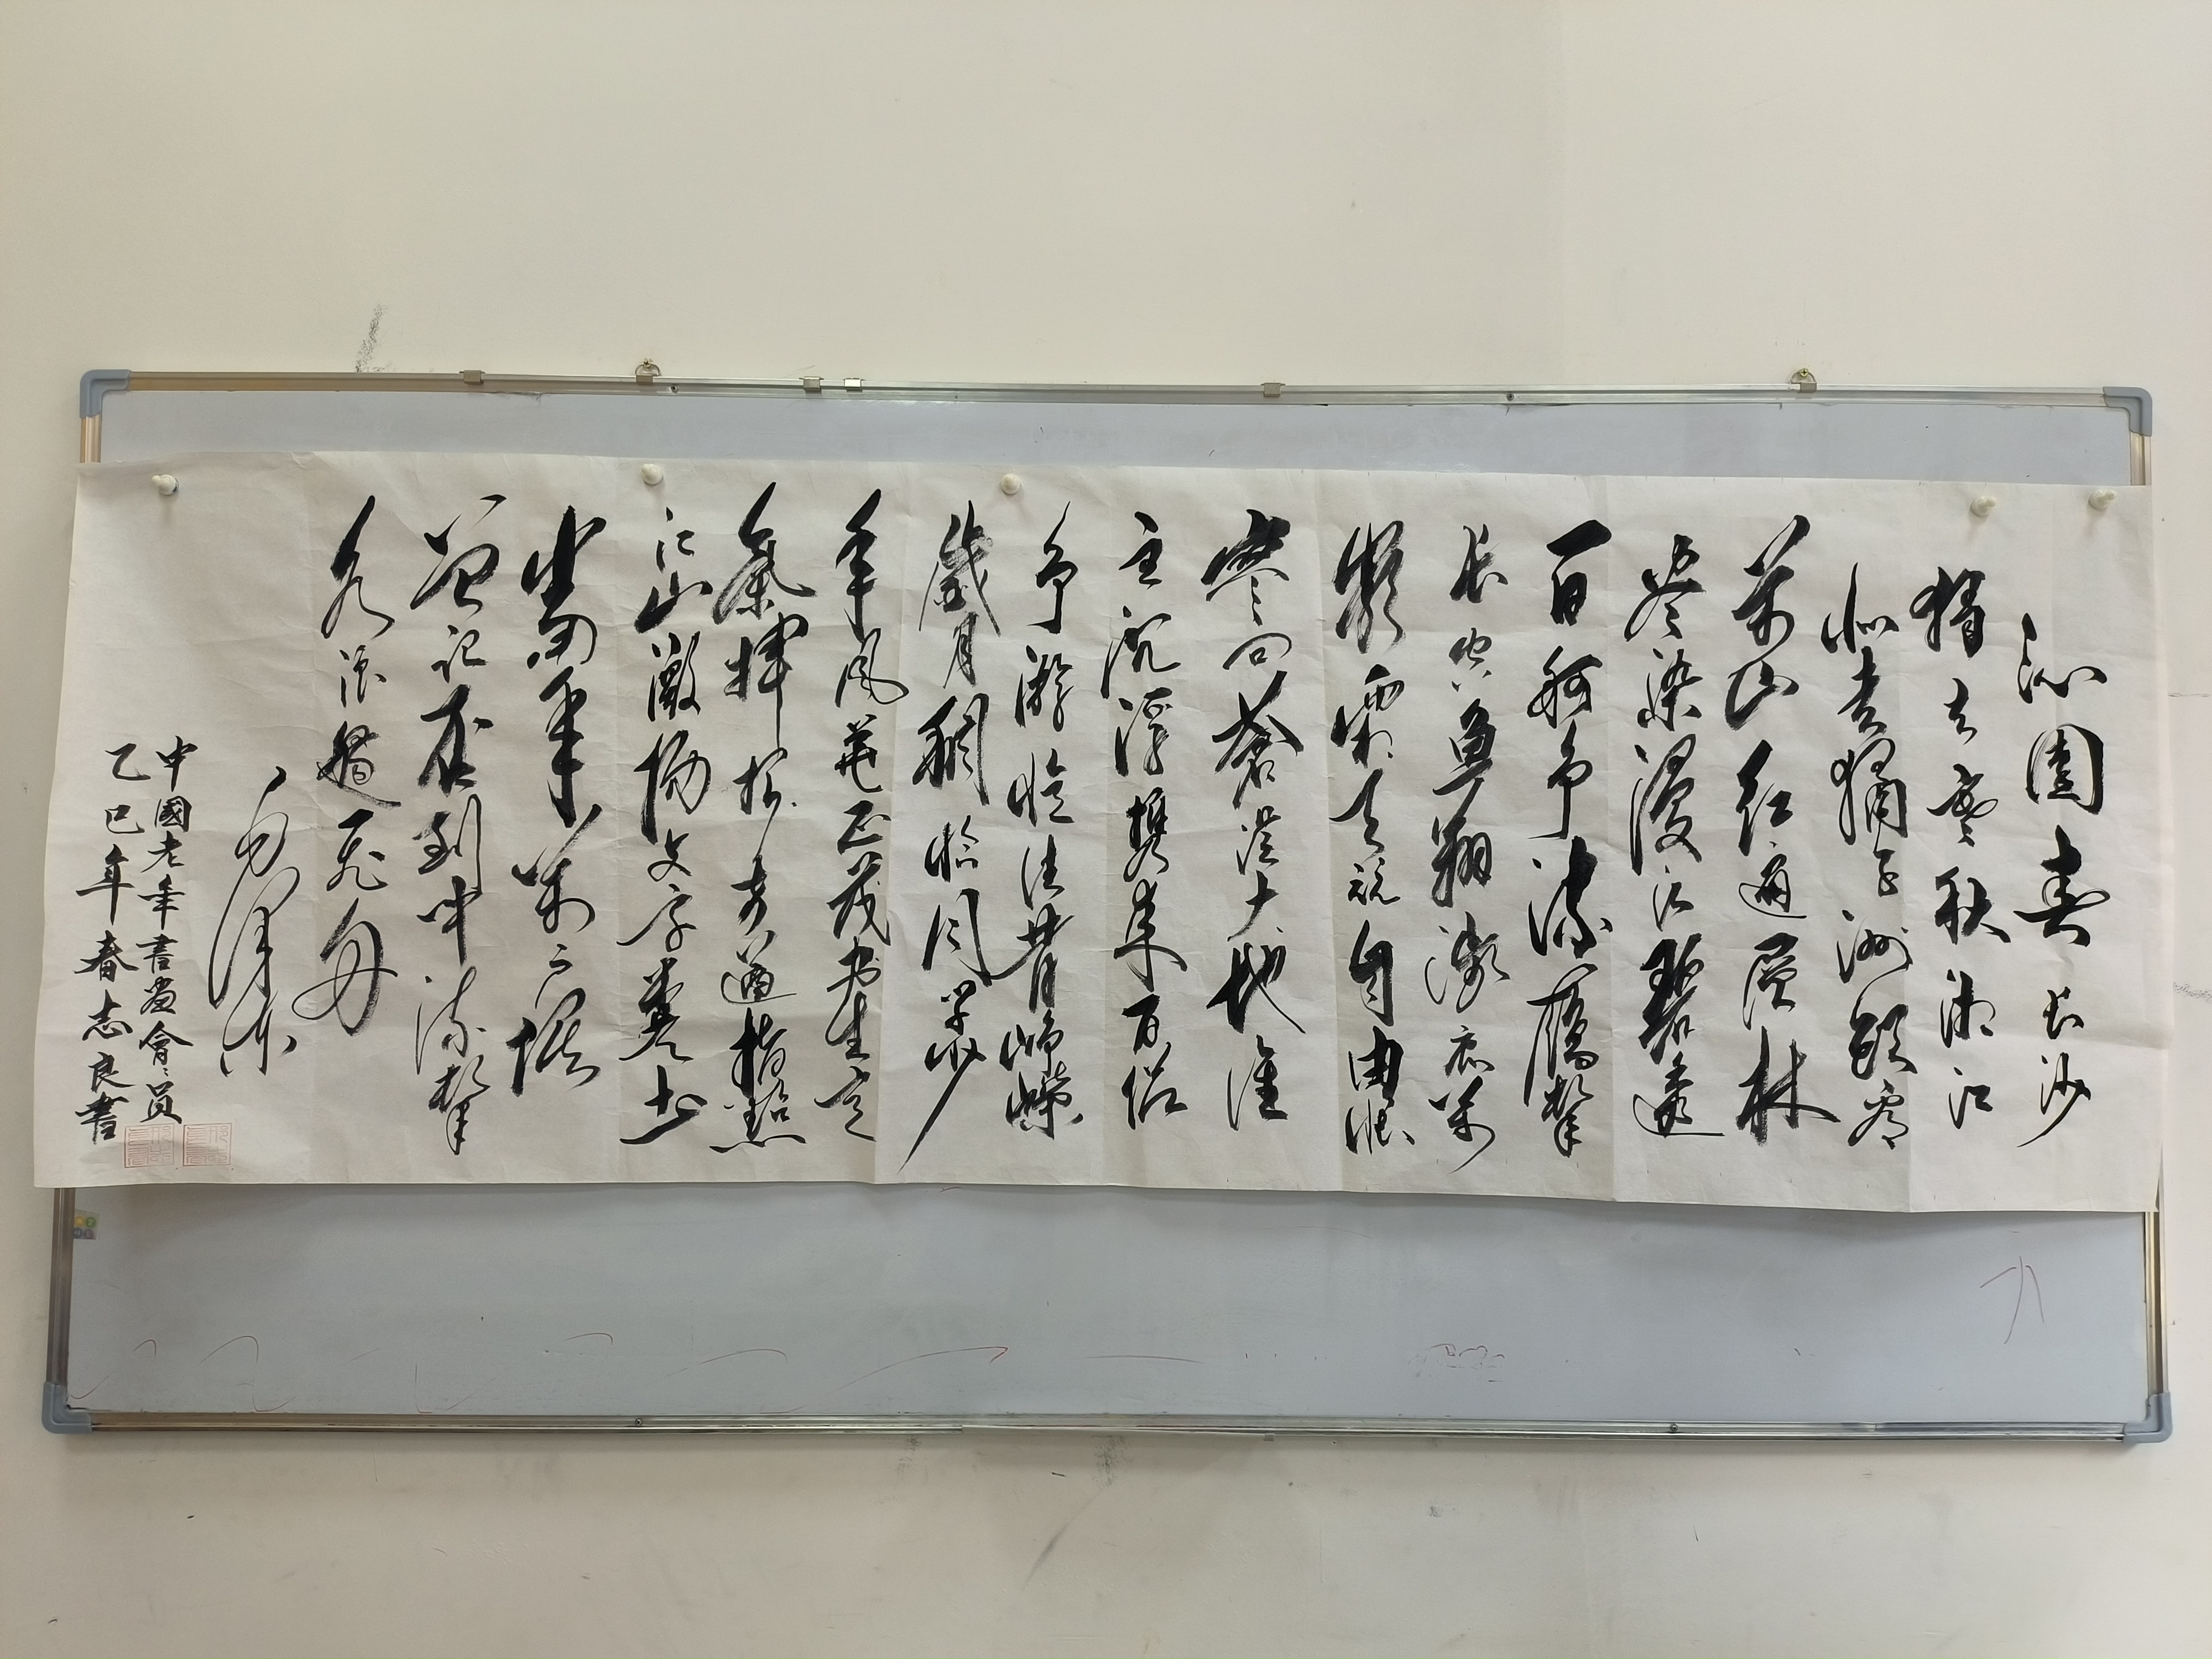 沁園春 长沙
独立寒秋湘江
北去橘子洲頭看
萬山红遍层林
尽染漫江碧透
百舸争流鷹擊
长空鱼翔浅底萬
類霜天競自由悵
寥问蒼茫大地谁
主沉浮携来百侣
游憶往昔崢嶸
歲月稠恰同学少
年風華正茂书生意
氣揮斥方遒指點
江山激扬文字糞土
當年萬户侯
曾记否到中流擊
水浪遏飞舟
毛泽东
中國老年書畫會员
乙巳年春志良書